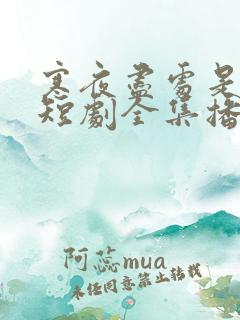 寒夜盡雷是
短劇全集播
阿蕊mua
未经同意禁止转载